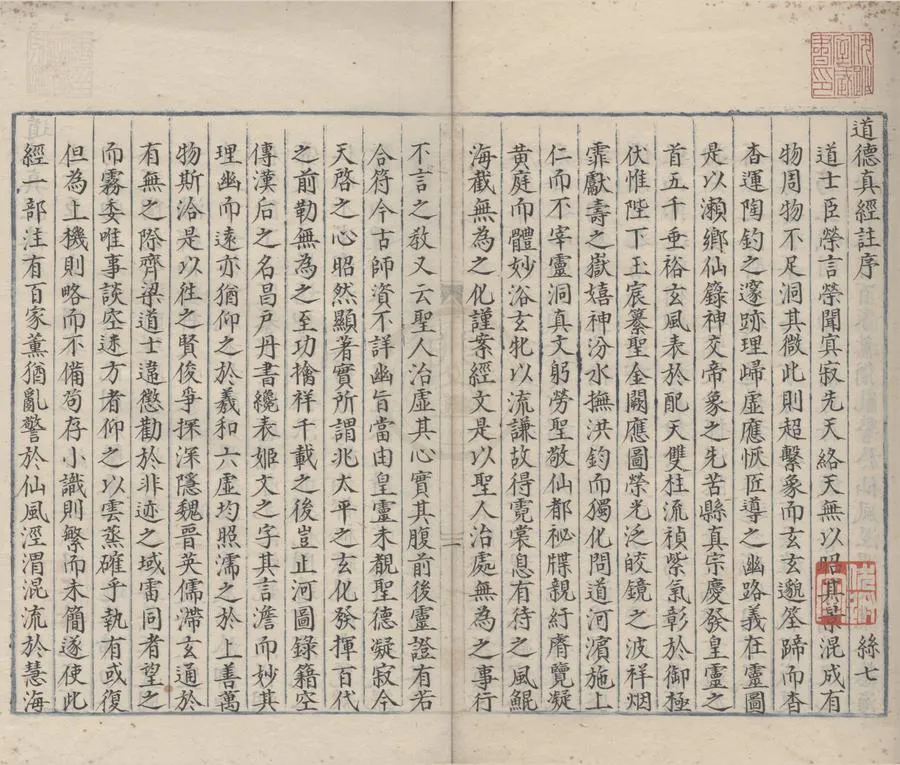 道德真經註序
絲七
道士臣榮言榮聞寂寂先天絡天無以昭其景混成有
物周物不足洞其微此則超繫象而玄玄邈筌蹄而杳
杳運陶鈞之邃跡理歸虛應恢匠導之幽路義在靈圖
是以瀨鄉仙錄神交帝象之先苦縣真宗慶發皇靈之
首五千垂裕玄風表於配天雙柱流禎紫氣彰於御極
伏惟陛下玉宸纂聖金闕應圖榮光泛皎鏡之波祥烟
霏獻壽之嶽嬉神汾水撫洪鈞而獨化問道河濱施上
仁而不宰靈洞真文躬勞聖敬仙都祕牒親紆睿覽凝
黃庭而體妙浴玄牝以流謙故得霓裳息有待之風鯤
海截無為之化謹案經文是以聖人治處無為之事行
不言之教又云聖人治虛其心實其腹前後靈證有若
合符今古師資不詳幽旨當由皇靈未覩聖德凝寂今
天啓之心昭然顯著實所謂兆太平之玄化發揮百代
之前勒無為之至功摛祥千載之後豈止河圖錄籍空
傳漢后之名昌戶丹書纔表姬文之字其言澹而妙其
理幽而遠亦猶仰之於羲和六虛均照濡之於上善萬
物斯洽是以往之賢俊爭探深隱魏晉英儒滯玄通於
有無之際齊梁道士違懲勸於非迹之域雷同者望之
而霧委唯事談空迷方者仰之以雲蒸確乎執有或復
但為上機則略而不備苟存小識則繁而未簡遂使此
經一部注有百家薰猶亂警於仙風涇渭混流於慧海